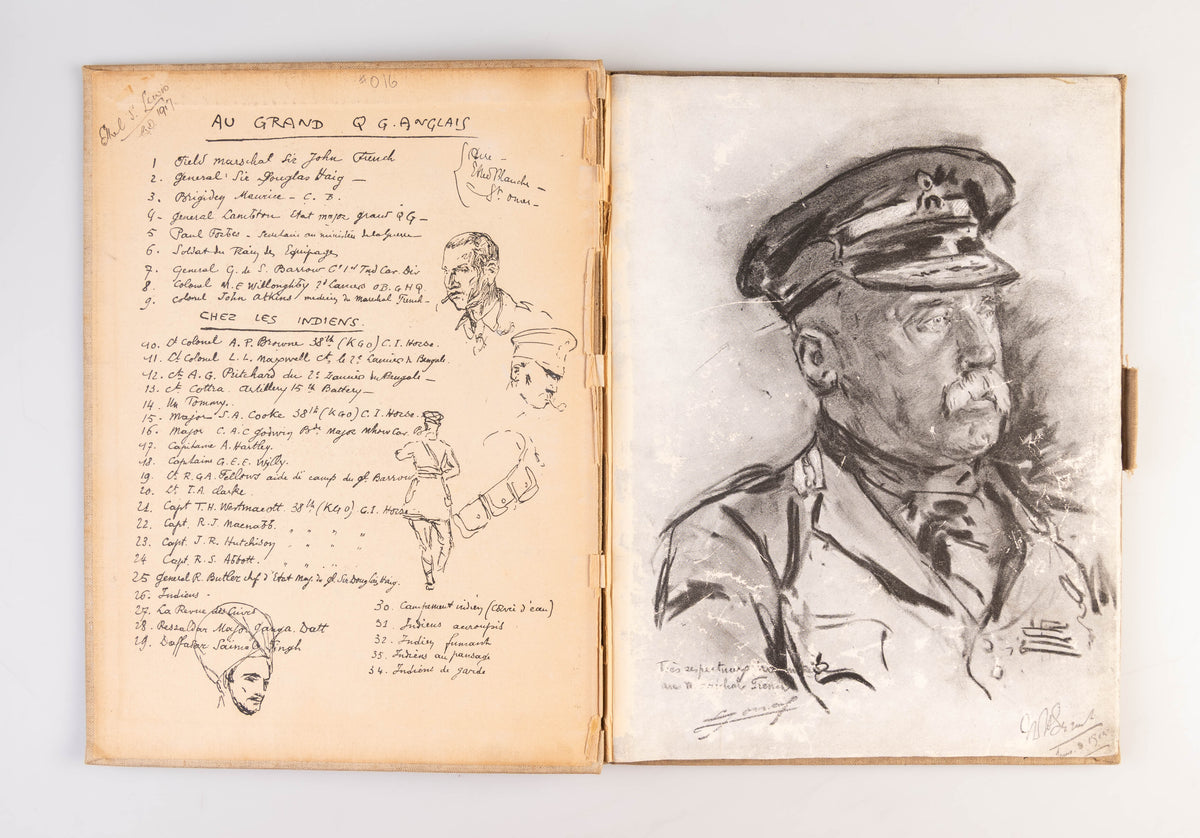 #016
Ethel S. Lewis
1917
AU GRAND Q G. ANGLAIS
1 Field Marschal Sir John French
2. General Sir Douglas Haig —
3. Brigidey Maurice — C. B.
4 - General Lambton Etat major grand QG —
5 Paul Fortes - Secretaire au ministère de la Guerre
6. Soldat du Train des Equipages
7. General G. de S. Barrow Ct 1st Ind Car. Div
8. Colonel M. E Willoughby 2d Lancers OB. GHQ.
9. Colonel John Atkins medecin du Marechal French -
Aire -
St Omer -
CHEZ LES INDIENS.
10. Lt Colonel A. P. Browne 38th (KGO) C. I. Horse.
11. Lt Colonel L. L. Maxwell Ct. le 2e Lanciers du Bengale.
12. Ct A. G. Pritchard du 2e Lanciers du Bengale —
13. Ct Cottra artillery 15th Battery —
14. Un Tommy.
15. Major S. A. Cooke 38th (KGO) C. I. Horse.
16. Major C. A. C Godwin Bde Major Mhow Car. B
17. Capitaine A. Hartley.
18. Captaine G. E. E. Wylly.
19. Lt R. GA. Fellows aide de camp du gl Barrow
20. Lt I. A. Clarke.
21. Capt T. H. Westmacott 38th (KGO) C. I. Horse
22. Capt. R. J. Macnabb. " " " "
23. Capt. J. R. Hutchison " " " "
24 Capt. R. S. Abbott. " " " "
25 General R. Butler chef d'Etat Maj. de gl Sir Douglas Haig.
26. Indiens -
27. La Revue des Cuirs
28. Ressaldar Major Ganga. Datt
29. Daffadar Singh
30. Campement indien (Corvée d'eau)
31. Indiens accroupis
32. Indien fumant
35. Indiens au pansage
34. Indiens de garde
Très respectueux
au French
1915